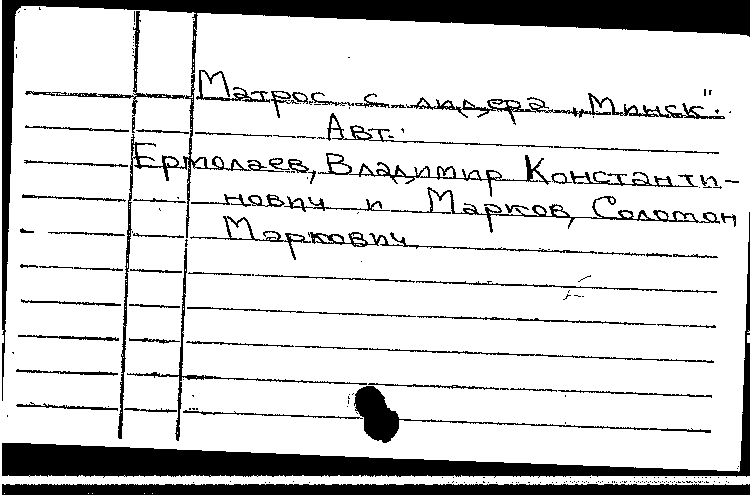 Матрос с лидера „Минск".
Авт.:
Ермолаев, Владимир Константи-
нович и Марков, Соломон
Маркович